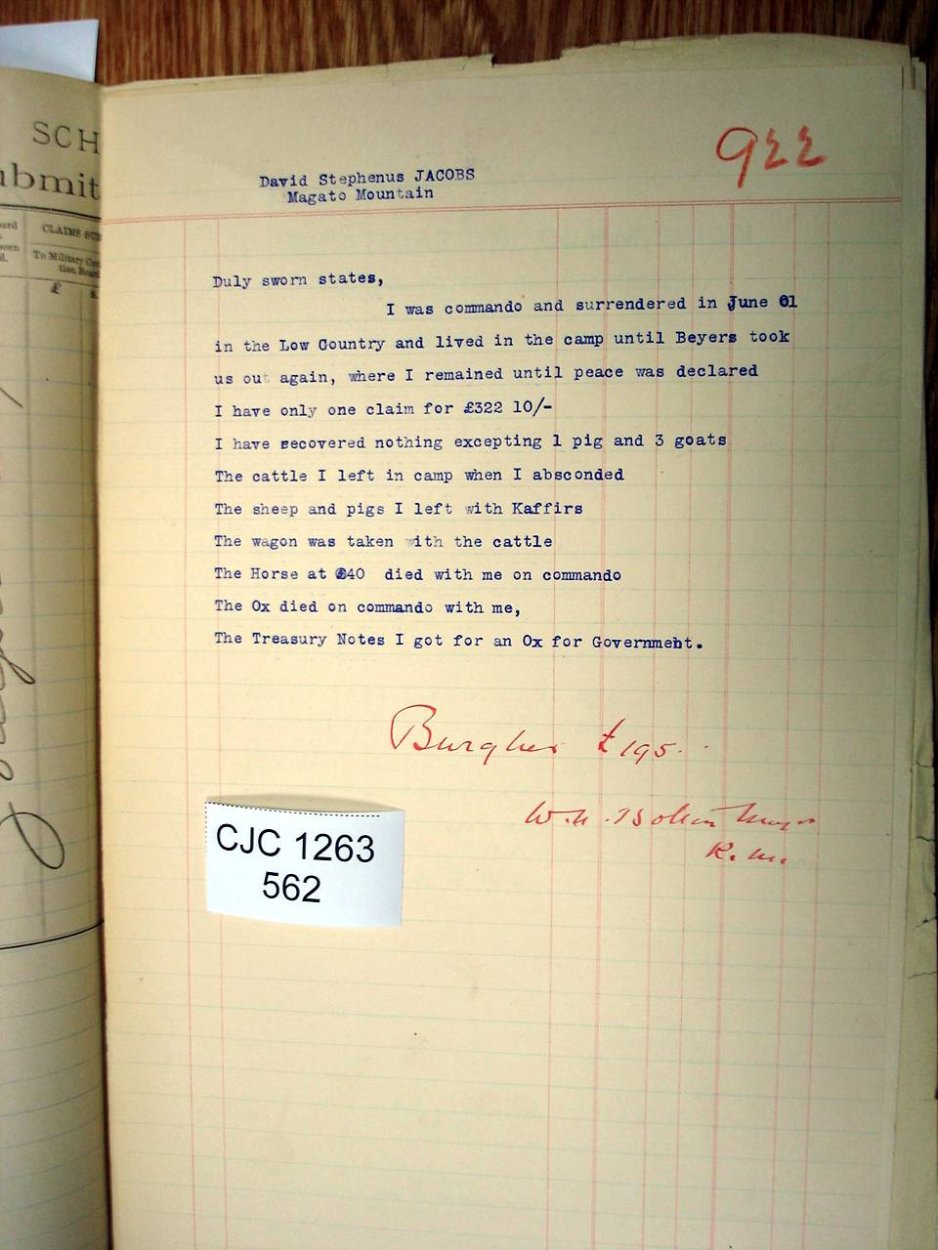 SCH
ubmit
CLAIMS SUB
To Military Com
tion Board
£ s.
922
David Stephenus JACOBS
Magato Mountain
Duly sworn states,
I was commando and surrendered in June 01
in the Low Country and lived in the camp until Beyers took
us out again, where I remained until peace was declared
I have only one claim for £322 10/-
I have recovered nothing excepting 1 pig and 3 goats
The cattle I left in camp when I absconded
The sheep and pigs I left with Kaffirs
The wagon was taken with the cattle
The Horse at £40 died with me on commando
The Ox died on commando with me,
The Treasury Notes I got for an Ox for Government.
Burgher £195.
R.M.
CJC 1263
562